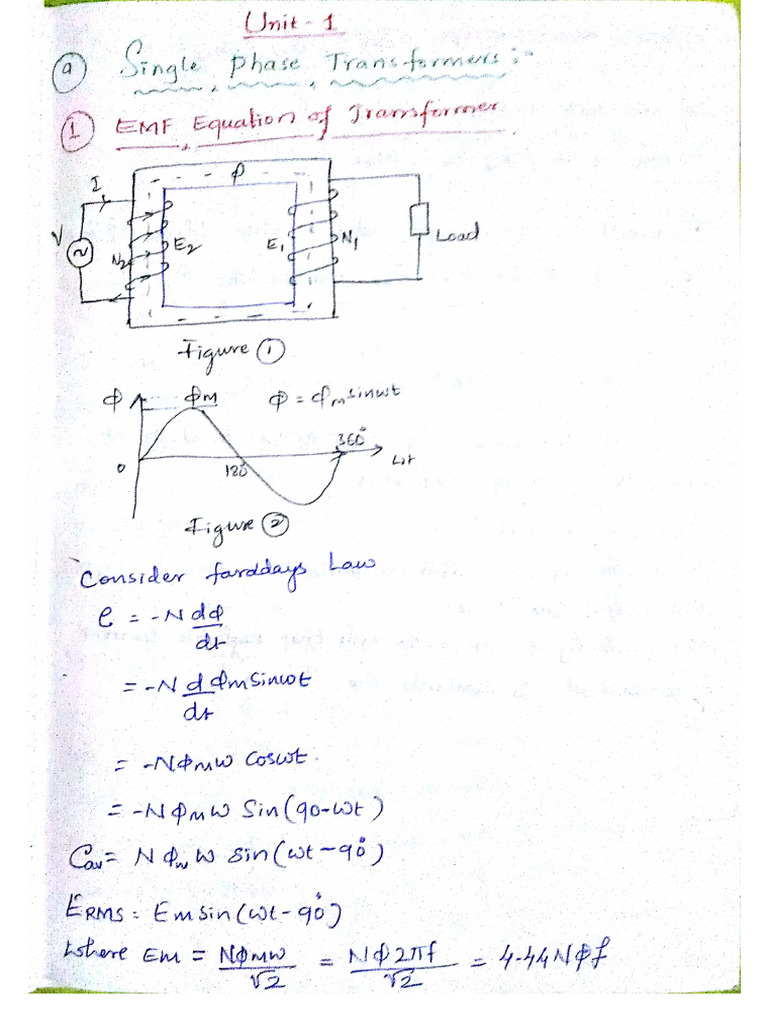 Unit - 1
a Single Phase Transformers :-
1 EMF Equation of Transformer
I
φ
V
N2
E2
E1
N1
Load
Figure 1
Φ
Φm
Φ = Φm sinωt
0
180°
360°
ωt
Figure 2
Consider farddays Law
e = -N dΦ/dt
= -N d/dt Φm Sinωt
= -NΦmω Cosωt.
= -NΦmω Sin(90-ωt)
eav = NΦmω Sin(ωt-90°)
ERMS = Em sin(ωt-90°)
Where Em = NΦmω/√2 = NΦ2πf/√2 = 4.44NΦf